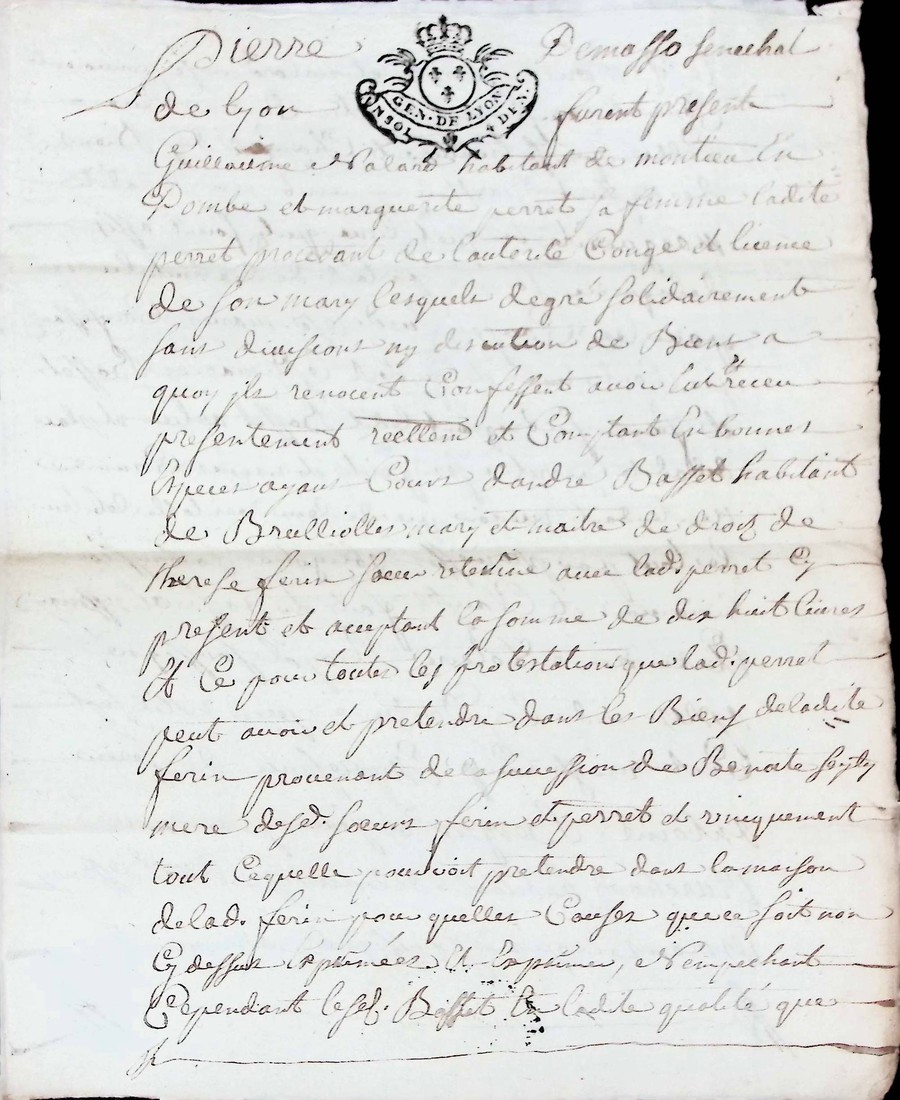 Pierre Demasso senechal
GEN. DE LYON
de lyon furent presents
Guillaume habitant de montieu En
Dombe et marguerite perret sa femme ladite
perret procedant de lauterité Congé et licence
de son mary lesquels degré solidairement
sans diuisions ny discution de Biens a
quoy jls renocent Confessent auoir Eub et receu
presentement reellemt et Comptant En bonnes
Especes ayans Cours dandré Basset habitant
de Brulliolles mary et maitre de droits de
therese ferin soeur uterine auec lad. perret Cy
present et acceptant la somme de dix huit liures
Et Ce pour toutes les protestations que lad. perret
peut auoir et pretendre dans les Biens deladite
ferin prouenant de la sucession de Benoite
mere desd. soeurs ferin et perret et vniquement
tout Cequelle pouuoit pretendre dans la maison
delad. ferin pour quelles Causes que ce soit non
Cy dessus Exprimées Et Exprimer, Nempechant
Cependant lesd. Basset En ladite qualité que